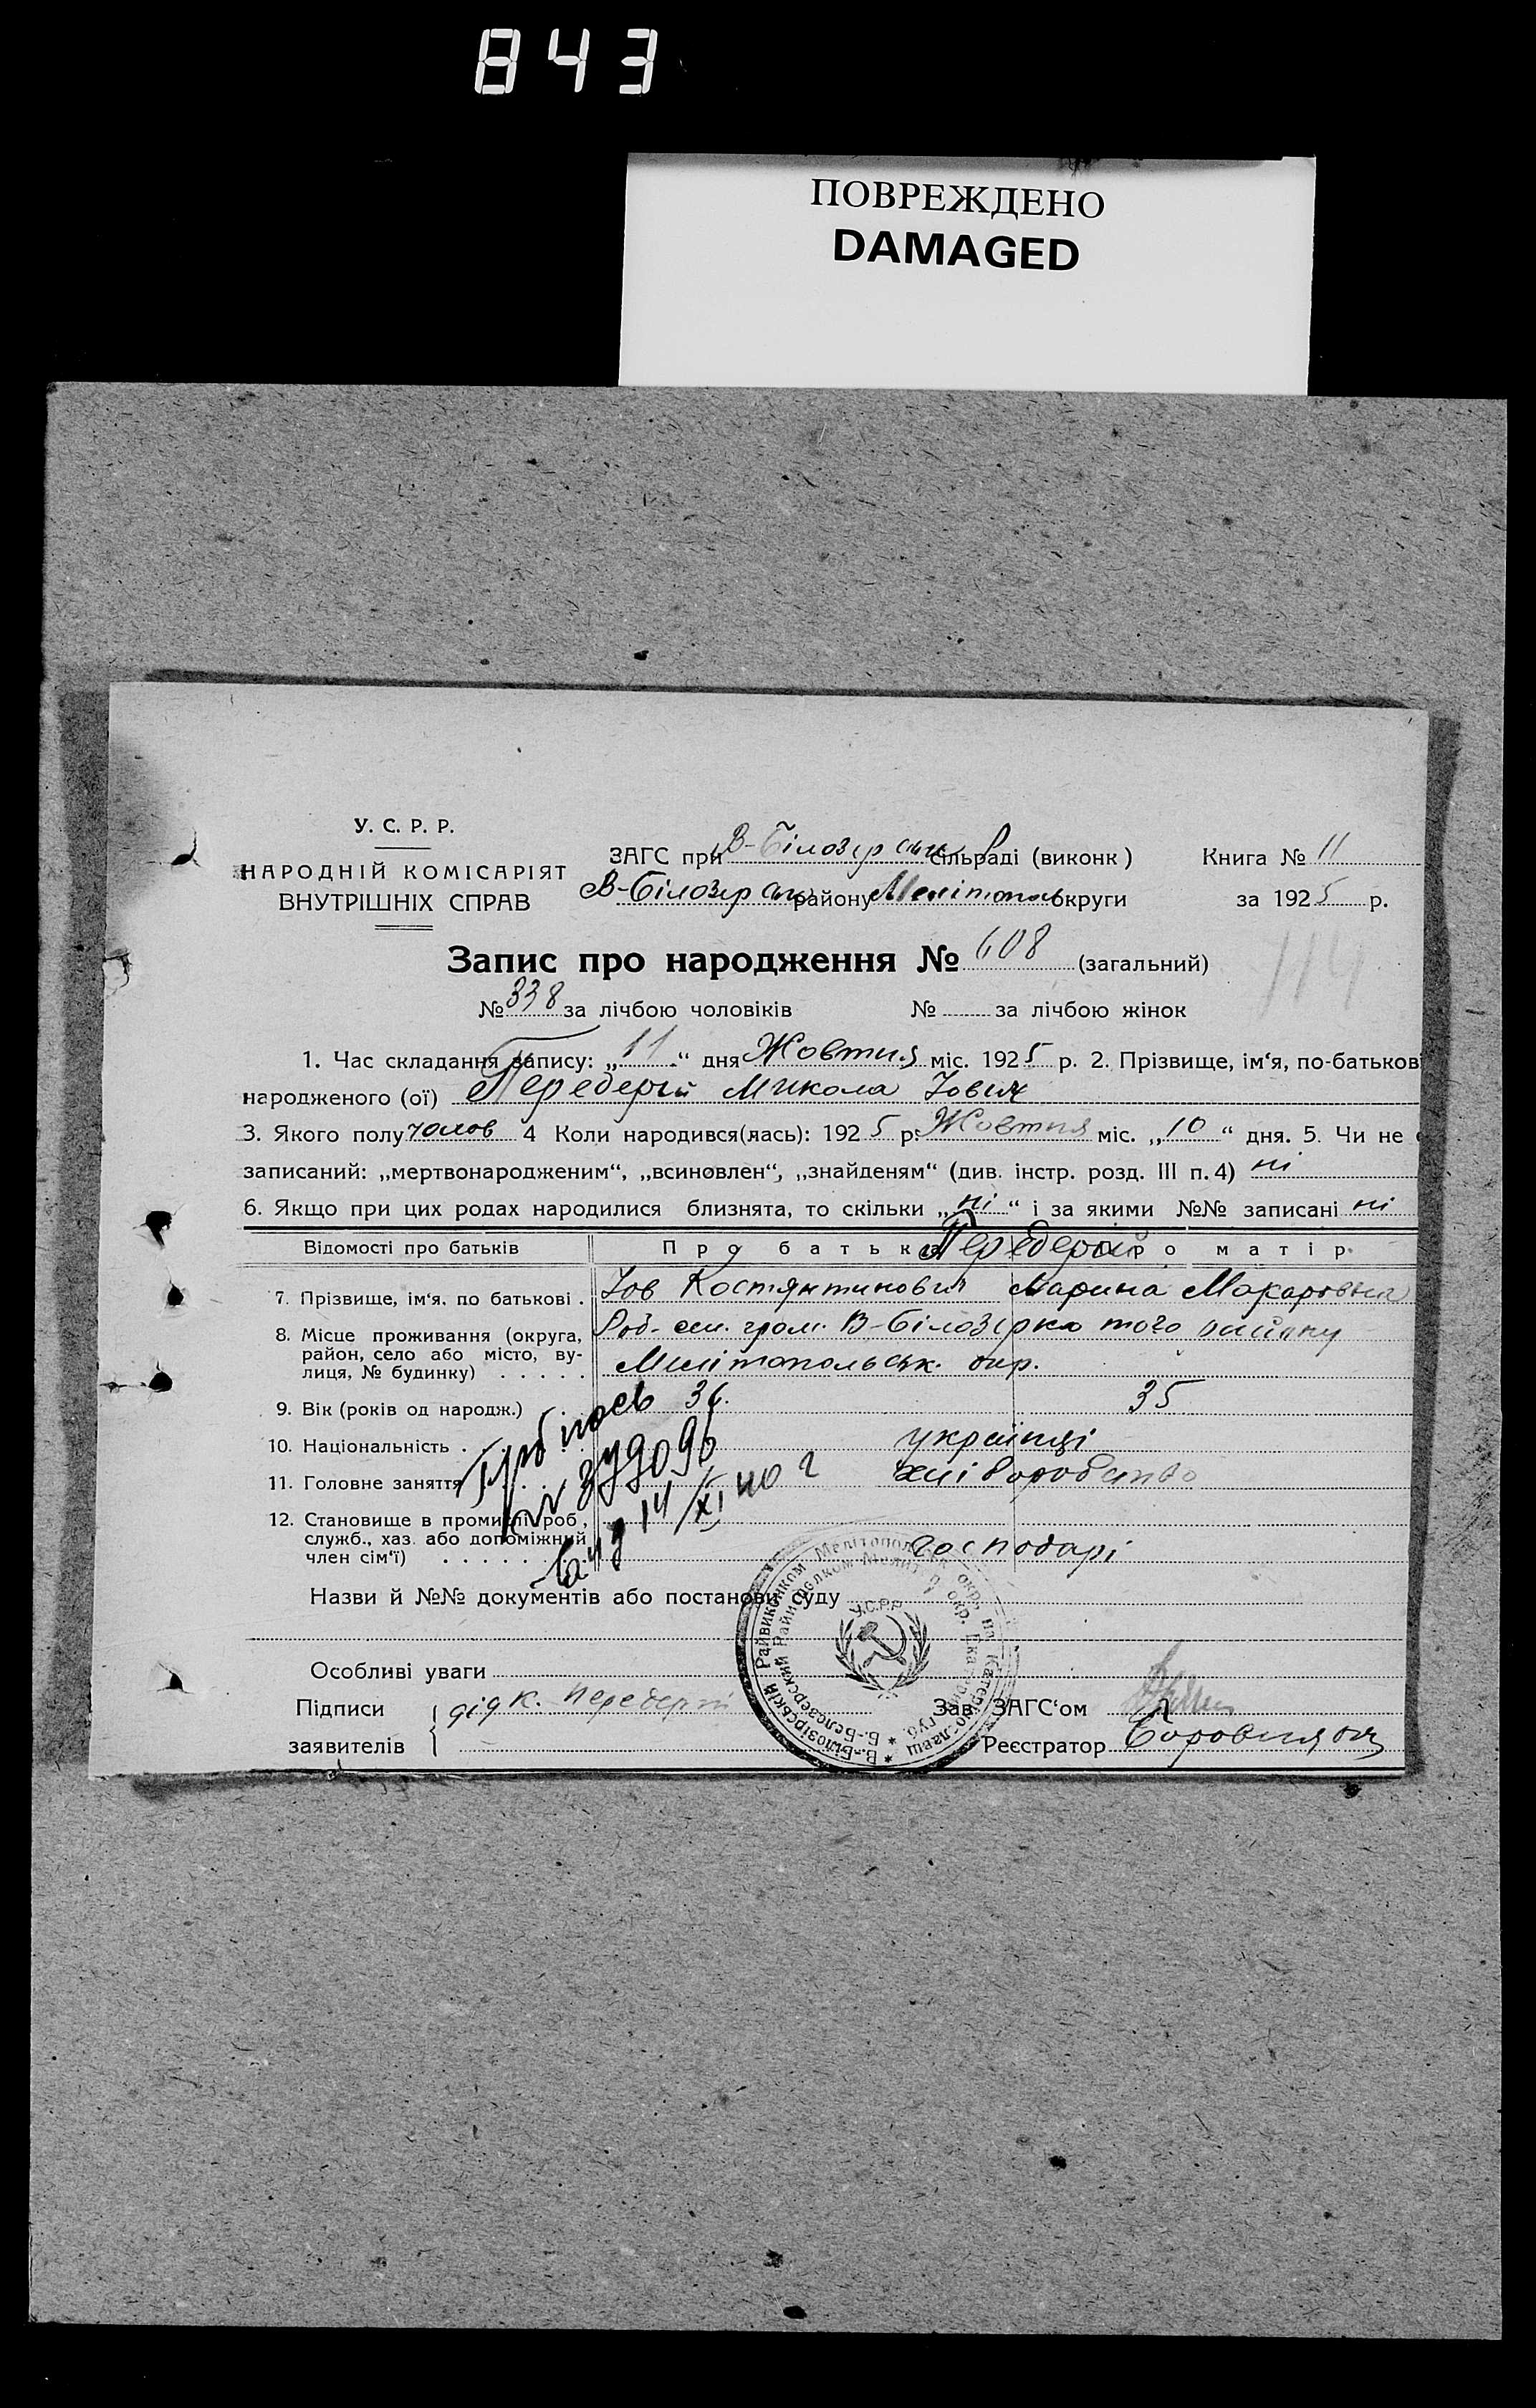 843
ПОВРЕЖДЕНО
DAMAGED
У. С. Р. Р.
НАРОДНІЙ КОМІСАРІЯТ
ВНУТРІШНІХ СПРАВ
ЗАГС при В-Білозірськ сільраді (виконк)
В-Білозірськ району Мелітополь округи
Книга № 11
за 1925 р.
Запис про народження № 608 (загальний)
114
№ 338 за лічбою чоловіків № за лічбою жінок
1. Час складання запису: „11“ дня Жовтня міс. 1925 р. 2. Прізвище, ім‘я, по-батькові
народженого (ої) Передерій Микола Іович
3. Якого полу чолов 4 Коли народився(лась): 1925 р. Жовтня міс. „10“ дня. 5. Чи не
записаний: „мертвонародженим“, „всиновлен“, „знайденям“ (див. інстр. розд. III п. 4) ні
6. Якщо при цих родах народилися близнята, то скільки „ні“ і за якими №№ записані ні
Відомості про батьків Про батька Про матір
Передерій
7. Прізвище, ім‘я, по батькові . Іов Костянтинович Марина Макаровна
8. Місце проживання (округа, район, село або місто, вулиця, № будинку) . . . . . гром. В-Білозірка того району
Мелітопольськ. окр.
9. Вік (років од народж.) 36. 35
10. Національність . українці
11. Головне заняття хліборобство
12. Становище в промислі роб, служб., хаз. або допоміжний член сім‘ї) . . . . . господарі
№ 379096
14/XI 40 г
Назви й №№ документів або постанови суду
У.С.Р.Р.
В.-Білозірський Райвиконком Мелітопольськ. окр. на Катеринославщ.
В.-Белозерский Райисполком Мелит. окр. Екатерин. губ.
Особливі уваги
Підписи дід К. Передерій Зав. ЗАГС‘ом
заявителів Реєстратор